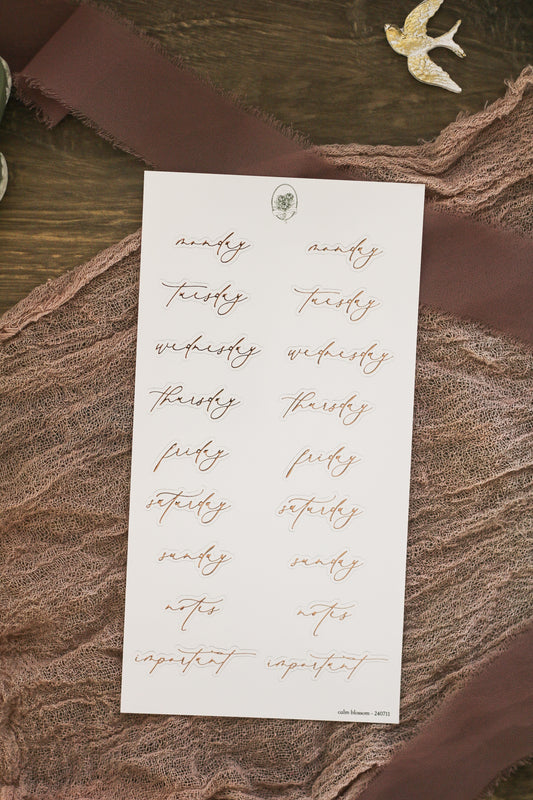 monday monday
tuesday tuesday
wednesday wednesday
thursday thursday
friday friday
saturday saturday
sunday sunday
notes notes
important important
calm blossom - 240711